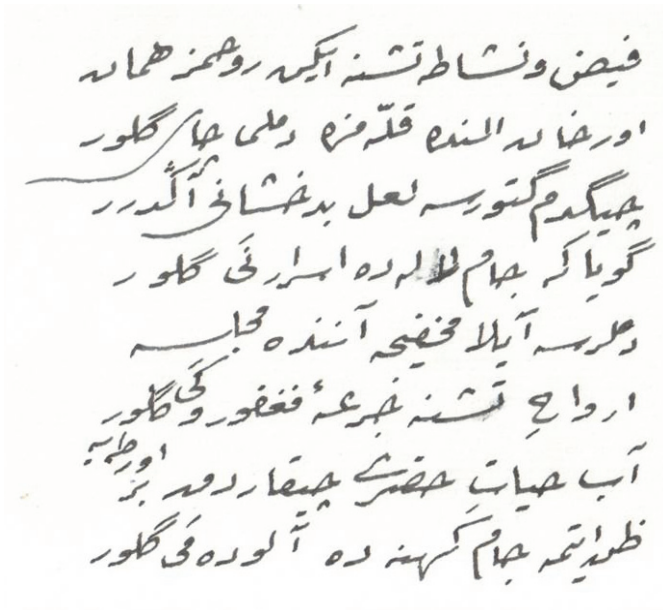 فیض و نشاطه تشنه ایکن روحمز همان
اورخان النده قلّه مزه دملی چای گلور
چیگدم گتورسه لعل بدخشانی آڭدرر
گویا که جام لاله ده اسرار نَی گلور
دملرسه آیلا مخفیجه آننده مجلسه
ارواحِ تشنه جرعهٔ فغفور و کَی گلور
آب حیاتِ خضری چیقاردق بز اورطه یه
ظن ایتمه جام کهنه ده آلوده مَی گلور